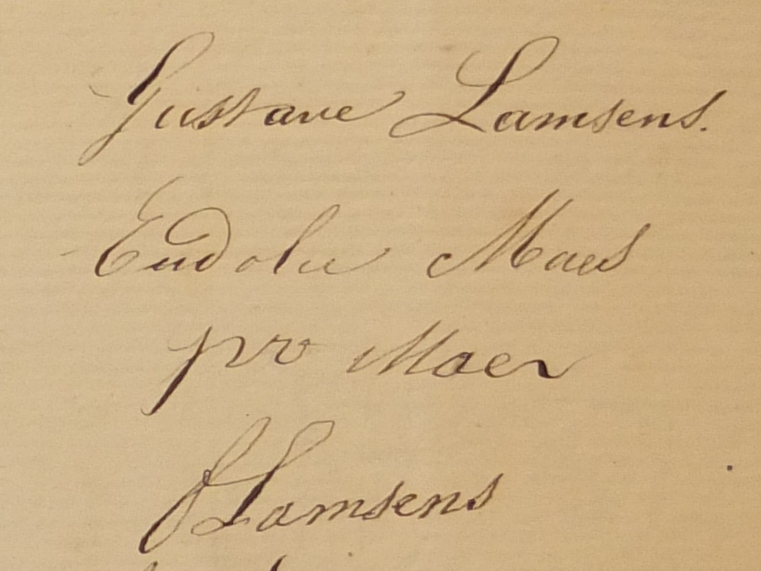 Gustave Lamsens.
Eudolie Maes
pr Maer
f Lamsens